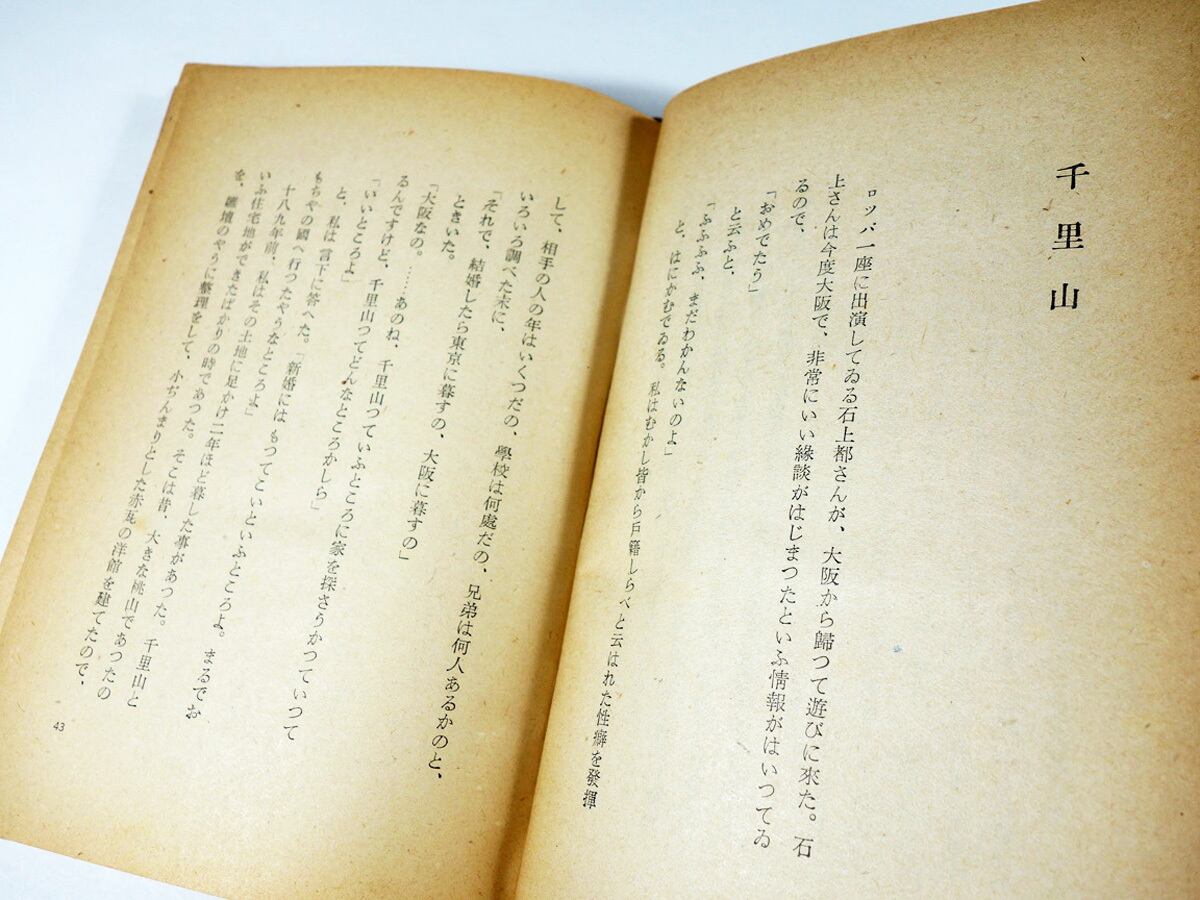 千里山
ロッパ一座に出演してゐる石上都さんが、大阪から歸つて遊びに來た。石
上さんは今度大阪で、非常にいい緣談がはじまつたといふ情報がはいつてゐ
るので、
「おめでたう」
と云ふと、
「ふふふふ、まだわかんないのよ」
と、はにかむでゐる。私はむかし皆から戸籍しらべと云はれた性癖を發揮
して、相手の人の年はいくつだの、學校は何處だの、兄弟は何人あるかのと、
いろいろ調べた末に、
「それで、結婚したら東京に暮すの、大阪に暮すの」
ときいた。
「大阪なの。……あのね、千里山つていふところに家を探さうかつていつて
るんですけど、千里山つてどんなところかしら」
「いいところよ」
と、私は言下に答へた。「新婚には もつてこいといふところよ。まるでお
もちやの國へ行つたやうなところよ」
十八九年前、私はその土地に足かけ二年ほど暮した事があつた。千里山と
いふ住宅地ができたばかりの時であつた。そこは昔、大きな桃山であつたの
を、雛壇のやうに整理をして、小ぢんまりとした赤瓦の洋館を建てたので、
43